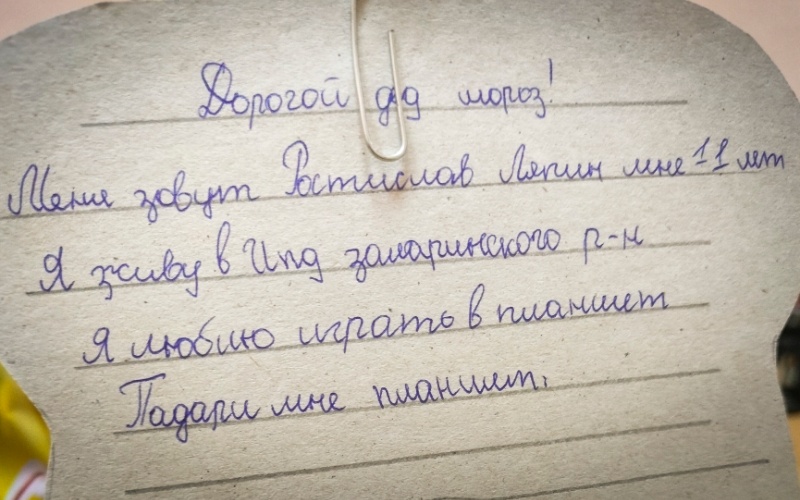 Дорогой дд мороз!
Меня зовут Ростислав Ляпин мне 11 лет
Я живу в Ипд замаринского р-н
Я люблю играть в планшет
Падари мне планшет.